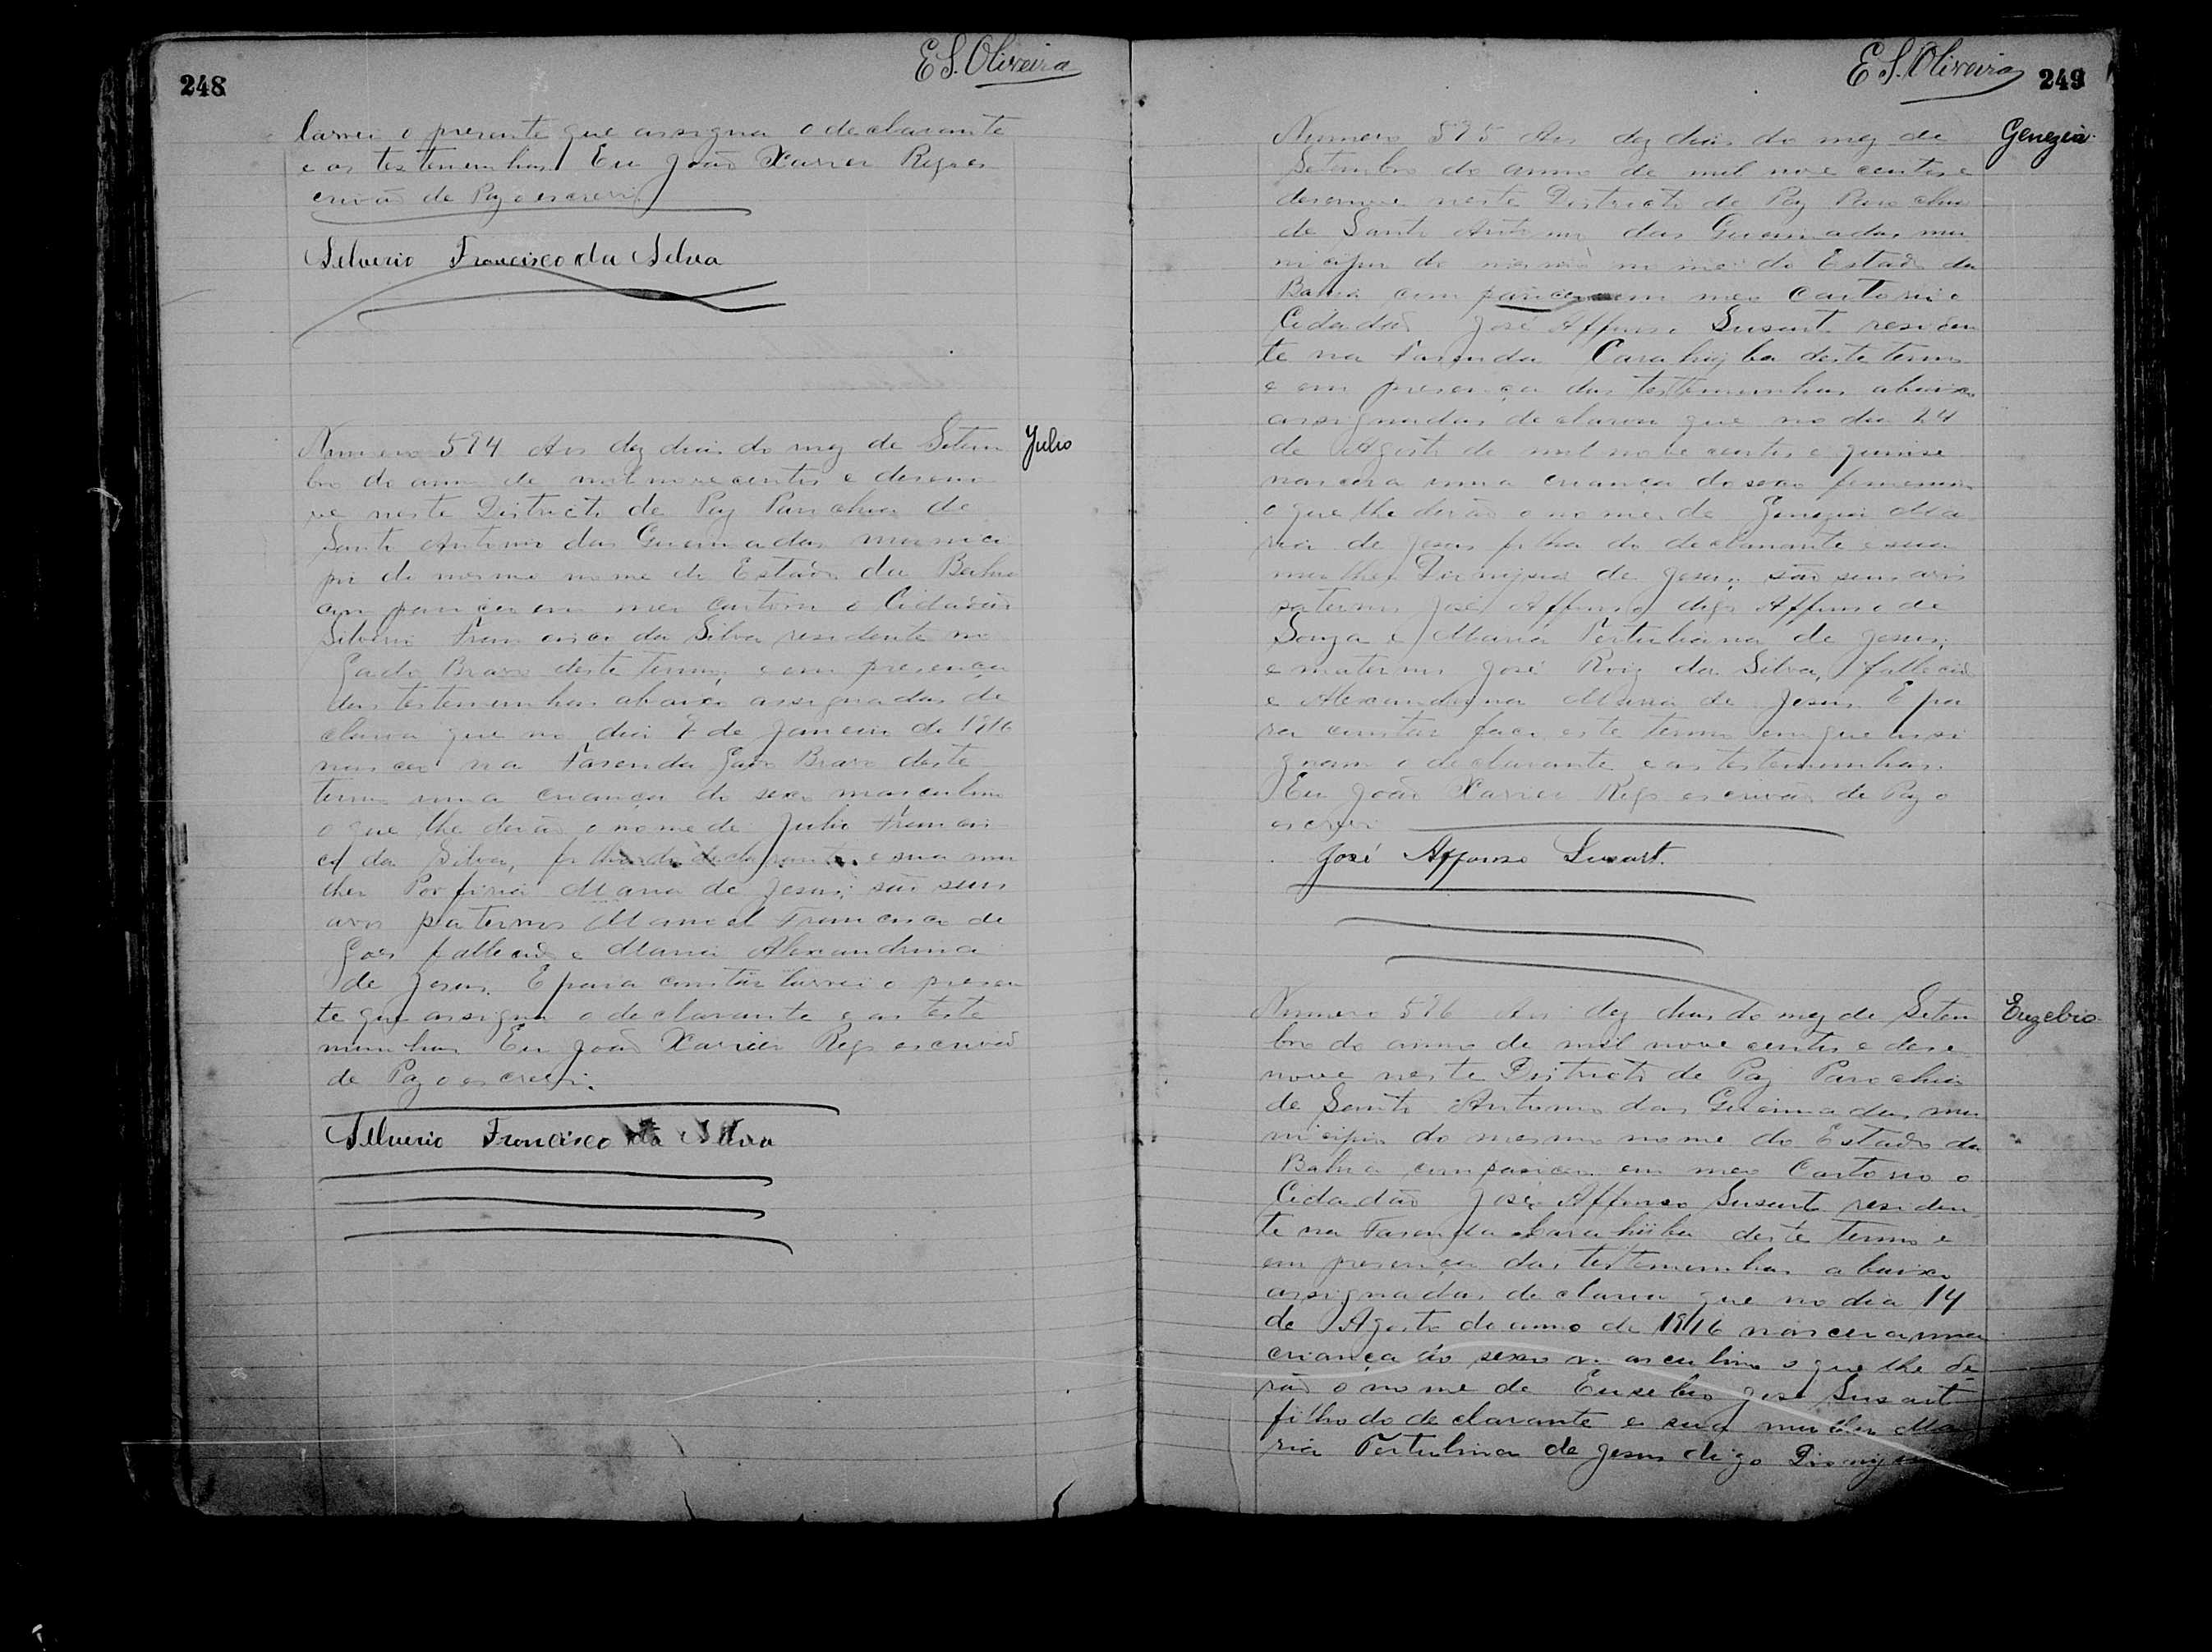 248
E S. Oliveira
lavrei o presente que assigna o declarante
e as testemunhas. Eu João Xavier Rego es
crivão de Paz o escrevi
Silverio Francisco da Silva
Julio
Numero 594 Aos dez dias do mez de Setem
bro do anno de mil novecentos e deseno
ve neste Districto de Paz Parochia de
Santo Antonio das Queimadas munici
pio do mesmo nome do Estado da Bahia
compareceu em meu cartorio o Cidadão
Silverio Francisco da Silva residente no
Gado Bravo deste termo, e em presença
das testemunhas abaixo assignadas de
clarou que no dia 8 de Janeiro de 1916
nasceu na Fasenda Gado Bravo deste
termo uma criança do sexo masculino
o que lhe derão o nome de Julio Francis
co da Silva, filho do declarante e sua mu
lher Porfiria Maria de Jesus; são seus
avos paternos Manoel Francisco de
Goes fallecido e Maria Alexandrina
de Jesus. E para constar lavrei o presen
te que assigna o declarante e as teste
munhas Eu João Xavier Rego escrivão
de Paz o escrevi.
Silverio Francisco da Silva
E S. Oliveira
249
Genezia
Numero 595 Aos dez dias do mez de
Setembro do anno de mil nove centos e
desenove neste Districto de Paz Parochia
de Santo Antonio das Queimadas mu
nicipio do mesmo nome do Estado da
Bahia compareceu em meu Cartorio o
Cidadão José Affonso Susart residen
te na Fasenda Carahyba deste termo
e em presença das testemunhas abaixo
assignadas declarou que no dia 24
de Agosto de mil nove centos e quinse
nascera uma criança do sexo femenino
o que lhe derão o nome de Genezia Ma
ria de Jesus filha do declarante e sua
mulher Dionizia de Jesus; são seus avós
paternos José Affonso digo Affonso de
Souza e Maria Tertuliana de Jesus;
e maternos José Roiz da Silva, fallecido
e Alexandrina Maria de Jesus. E pa
ra constar faço este termo em que assi
gnam o declarante e as testemunhas.
Eu João Xavier Rego escrivão de Paz o
escrevi
José Affonso Susart.
Euzebio
Numero 596 Aos dez dias do mez de Setem
bro do anno de mil nove centos e dese
nove neste Districto de Paz Parochia
de Santo Antonio das Queimadas mu
nicipio do mesmo nome do Estado da
Bahia compareceu em meu Cartorio o
Cidadão José Affonso Susarte residen
te na Fasenda Carahiba deste termo e
em presença das testemunhas abaixo
assignadas declarou que no dia 14
de Agosto do anno de 1916 nascera uma
criança do sexo masculino o que lhe de
rão o nome de Eusebio José Susart
filho do declarante e sua mulher Ma
ria Tertulina de Jesus digo Dionizia